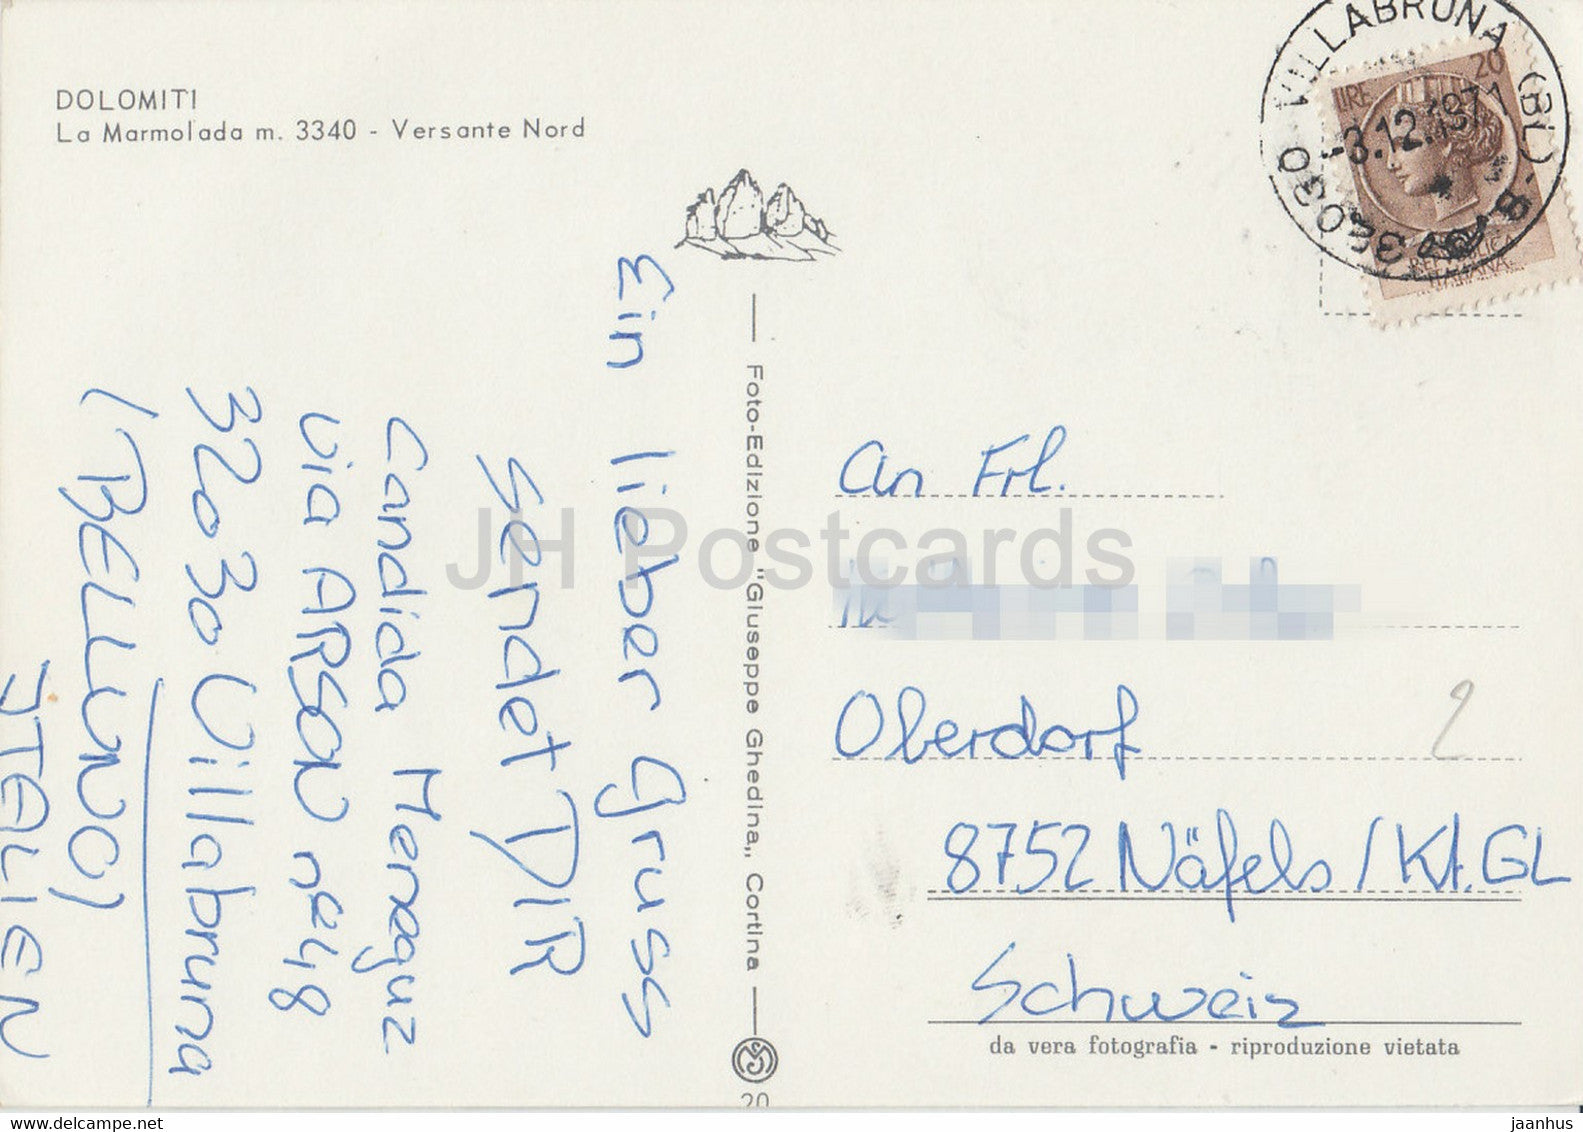 DOLOMITI
La Marmolada m. 3340 - Versante Nord
32030 VILLABRUNA (BL)
-3.12.1971
LIRE 20
REPUBBLICA
ITALIANA
Ein lieber Gruss
sendet DIR
Candida Meneguz
via ARSON no 48
32030 Villabruna
(BELLUNO)
ITALIEN
Foto-Edizione "Giuseppe Ghedina,, Cortina
20
An Frl.
Oberdorf
2
8752 Näfels / Kt. GL
Schweiz
da vera fotografia - riproduzione vietata
JH Postcards
www.delcampe.net
jaanhus